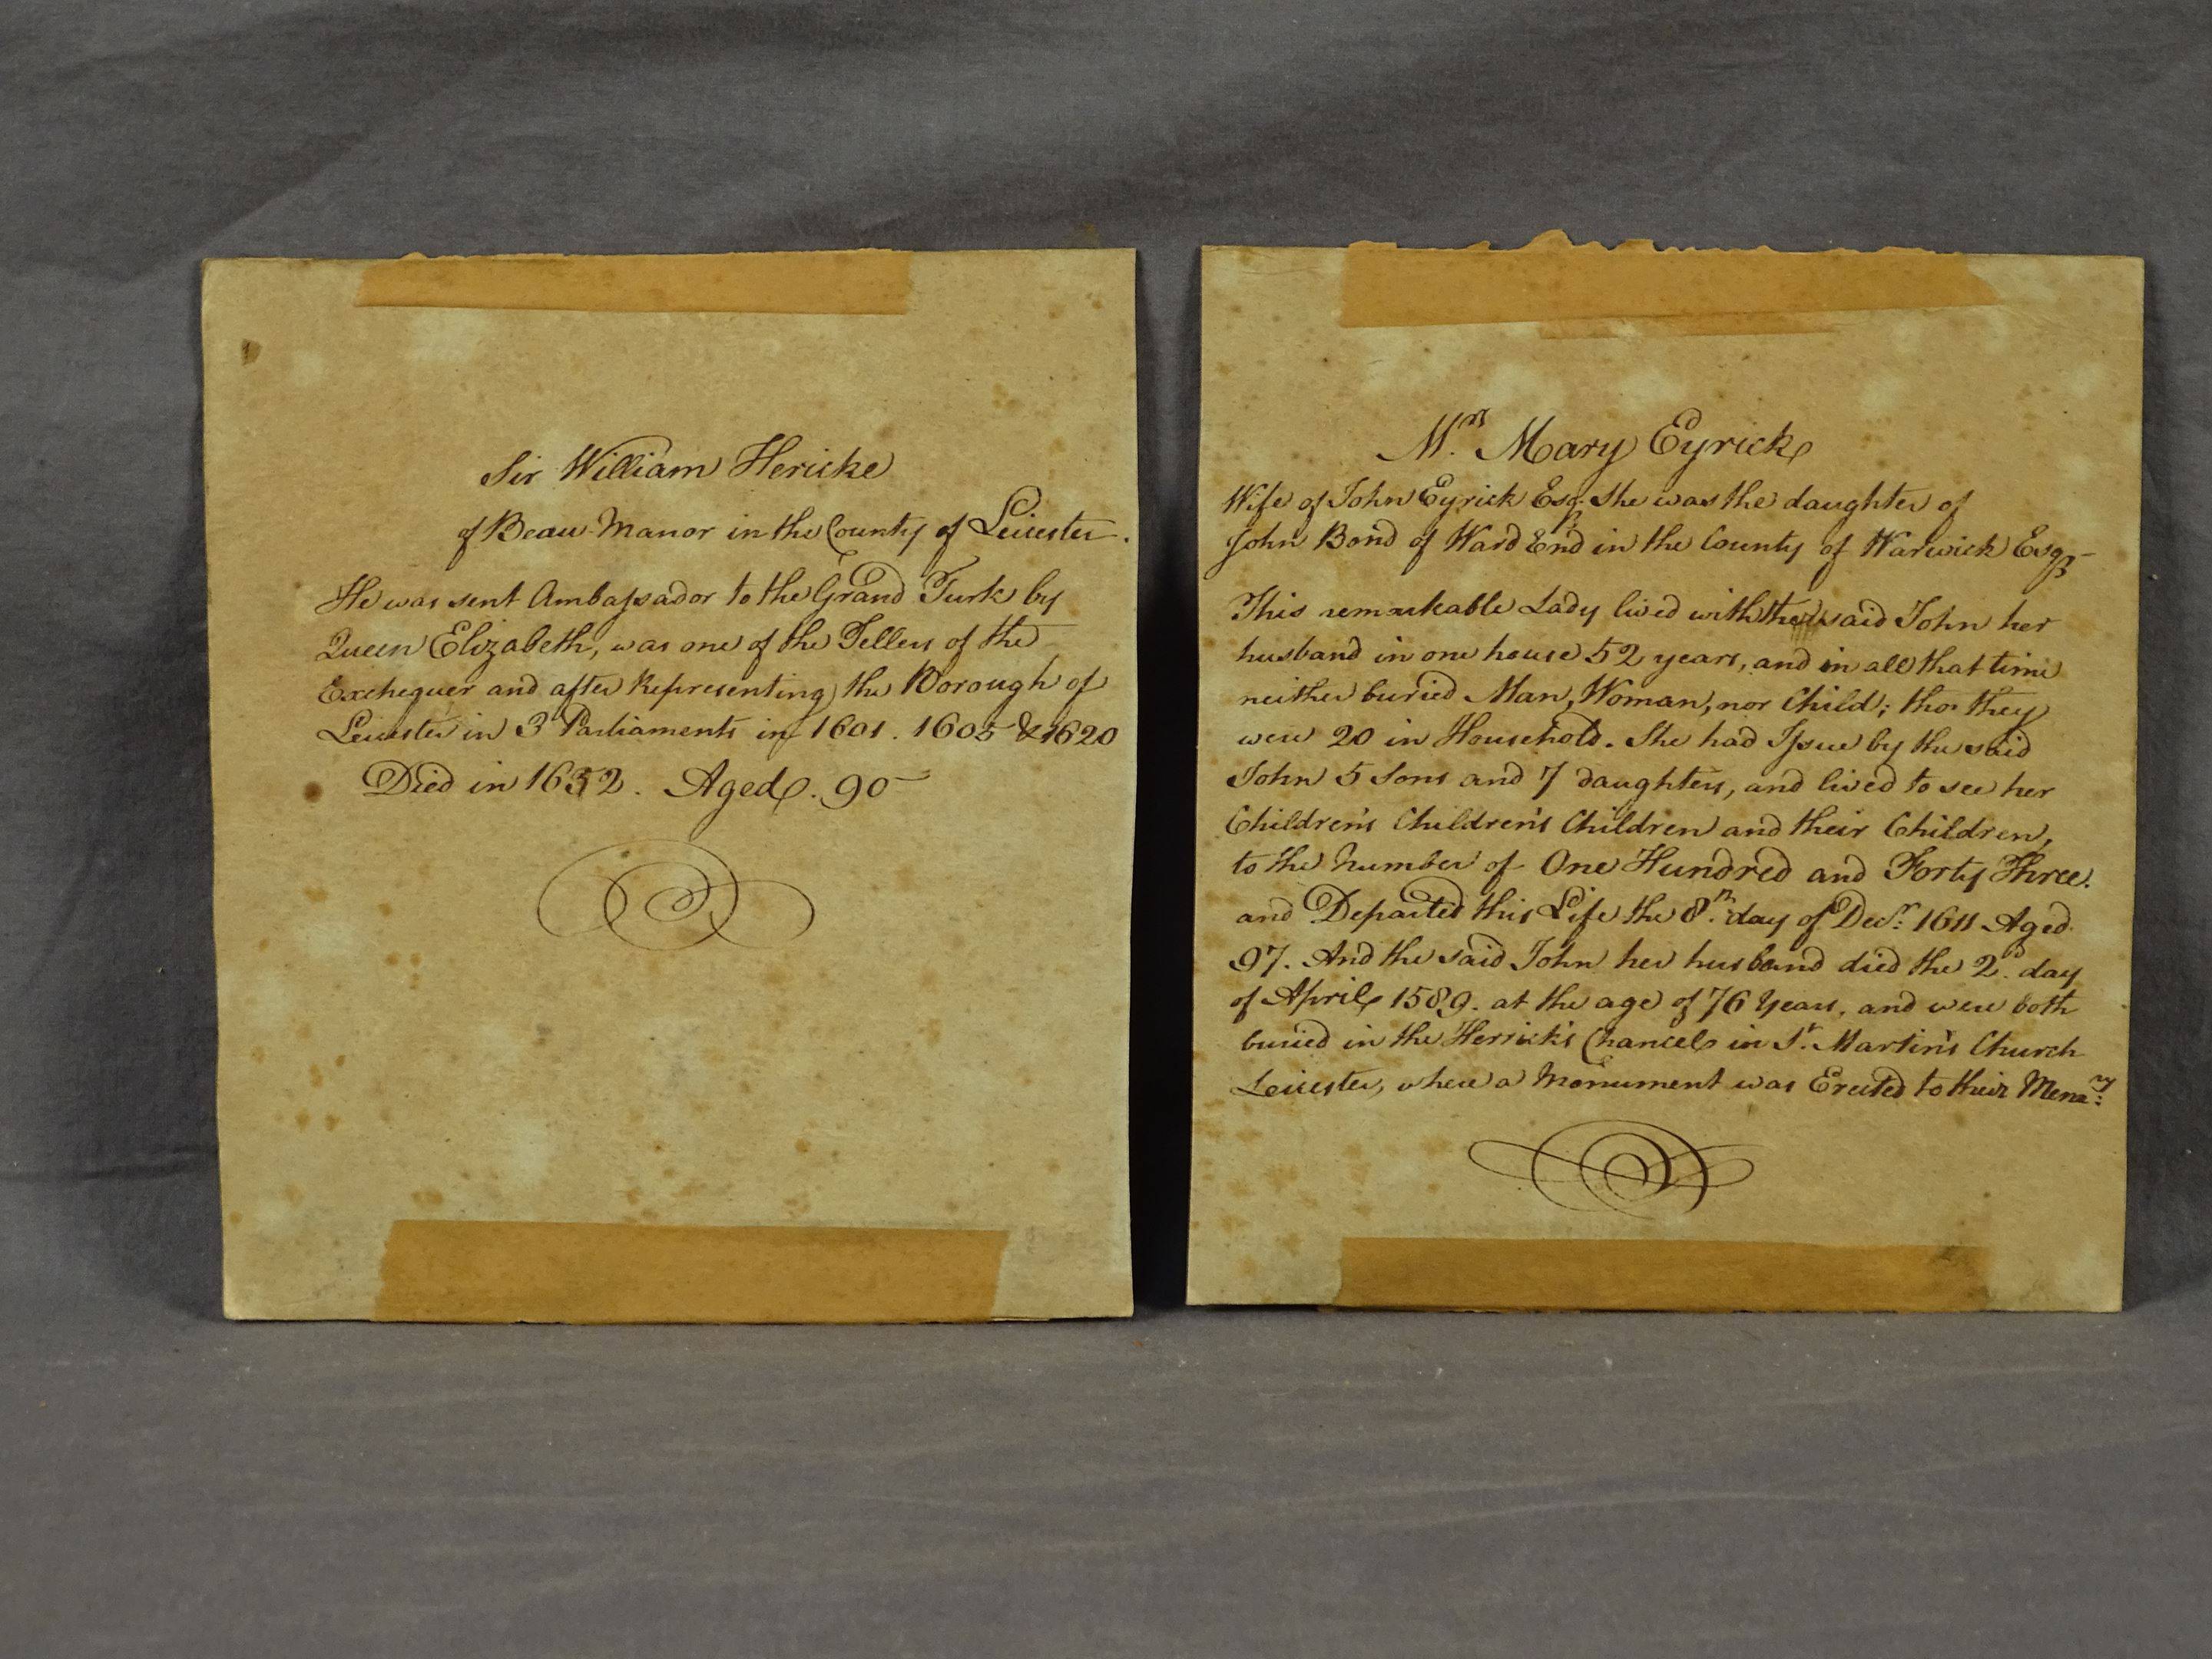 Sir William Hericke
of Beau-Manor in the County of Leicester.
He was sent Ambaſsador to the Grand Turk by
Queen Elizabeth, was one of the Tellers of the
Exchequer and after Representing the Borough of
Leicester in 3 Parliaments in 1601. 1605 & 1620
Died in 1632. Aged. 90
Mrs. Mary Eyrick
Wife of John Eyrick Esqr. She was the daughter of
John Bond of Ward End in the County of Warwick Esqr
This remarkable Lady lived with the said John her
husband in one house 52 years, and in all that time
neither buried Man, Woman, nor Child; tho' they
were 20 in Household. She had Iſsue by the said
John 5 Sons and 7 daughters, and lived to see her
Children's Children's Children and their Children,
to the Number of One Hundred and Forty Three.
and Departed this Life the 8th. day of Decr: 1611 Aged
97. And the said John her husband died the 2d. day
of April 1589. at the age of 76 Years, and were both
buried in the Herrick's Chancel in St. Martin's Church
Leicester, where a Monument was Erected to their Memy: